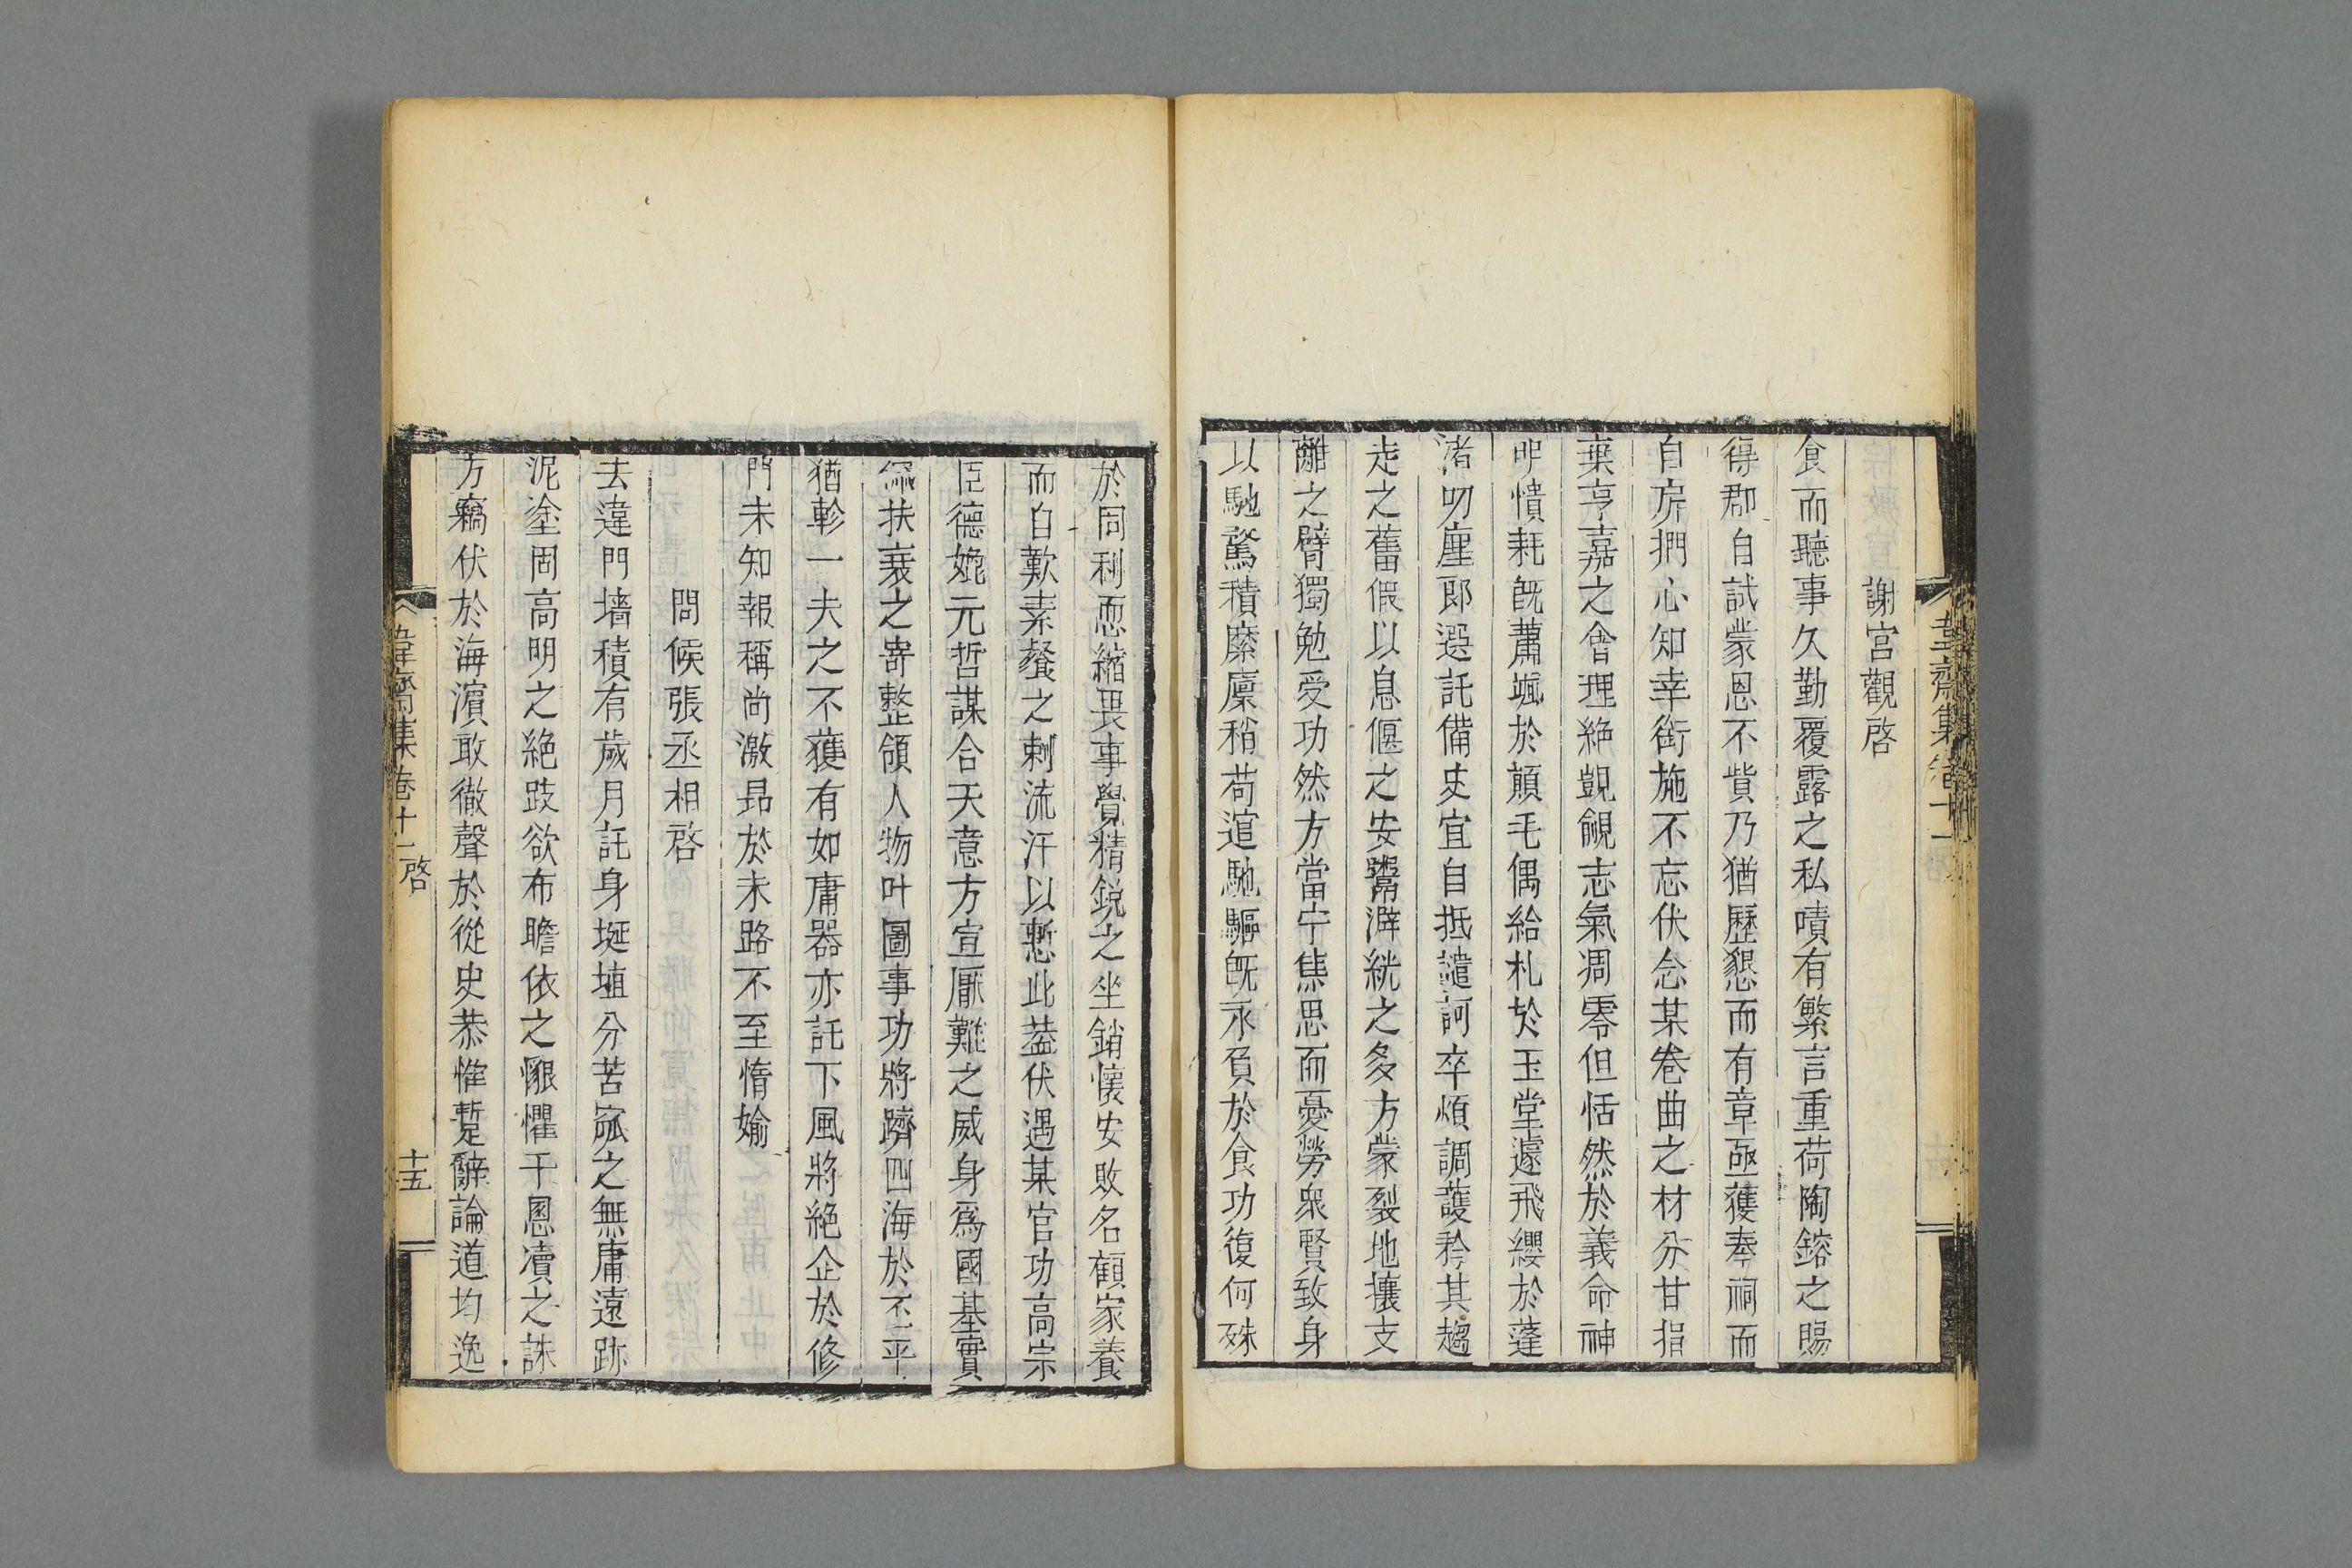 謝宮觀啓
食而聽事久勤覆露之私嘖有繁言重荷陶鎔之賜
得郡自試蒙恩不貲乃猶歷懇而有章亟獲奉祠而
自屏捫心知幸銜施不忘伏念某卷曲之材分甘捐
棄亨嘉之會理絶覬覦志氣凋零但恬然於義命神
明憒耗旣蕭颯於顛毛偶給札於玉堂遽飛纓於蓬
渚叨塵郎選託備史宜自抵譴訶卒煩調護矜其趨
走之舊假以息偃之安鬻澼絖之多方蒙裂地攘支
離之臂獨勉受功然方當宁焦思而憂勞衆賢致身
以馳騖積縻廩稍苟逭馳驅旣永負於食功復何殊
於同利恧縮畏事覺精銳之坐銷懷安敗名顧家養
而自歎素餐之刺流汗以慙此葢伏遇某官功高宗
臣德媲元哲謀合天意方宣厭難之威身爲國基實
繄扶衰之寄整領人物叶圖事功將躋四海於丕平
猶軫一夫之不獲有如庸器亦託下風將絶企於修
門未知報稱尚激昂於末路不至惰媮
問候張丞相啓
去違門墻積有歲月託身埏埴分苦窳之無庸遠跡
泥塗固高明之絶跂欲布瞻依之懇懼干慁凟之誅
方竊伏於海濵敢徹聲於從史恭惟蹔辭論道均逸
韋齋集卷十一 啓
十五
韋齋集卷十一